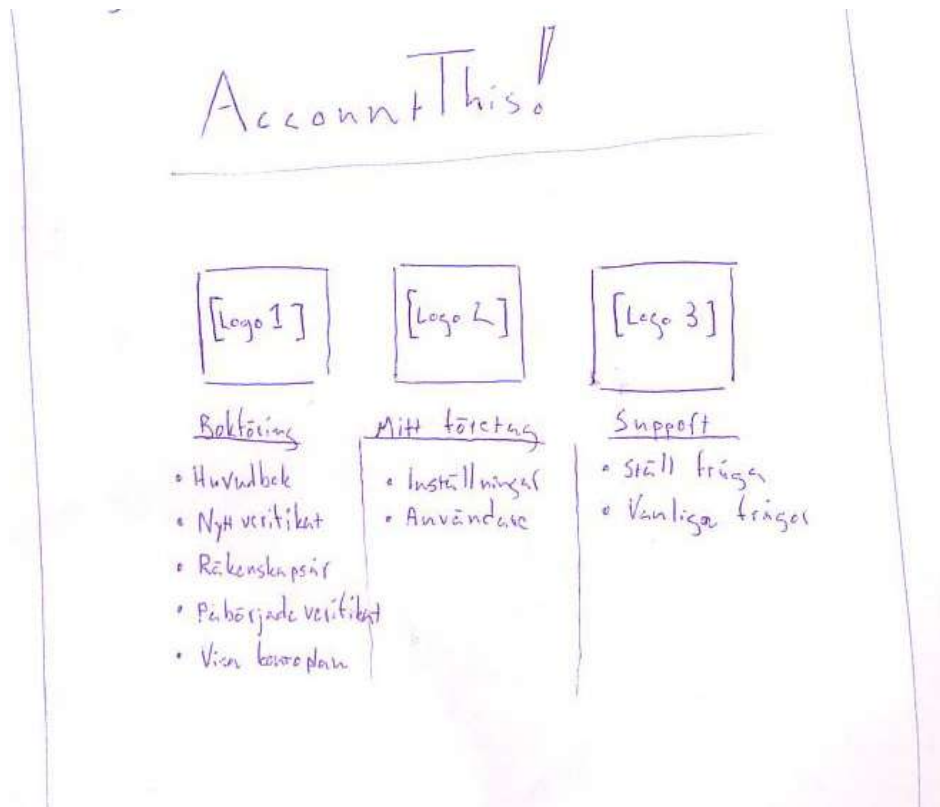 AccountThis!
[Logo 1] [Logo 2] [Logo 3]
Bokföring
• Huvudbok
• Nytt verifikat
• Räkenskapsår
• Påbörjade verifikat
• Visa kontoplan
Mitt företag
• Inställningar
• Användare
Support
• Ställ fråga
• Vanliga frågor